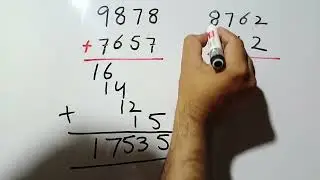 9878
+ 7657
16
14
12
+ 15
17535
8762
2